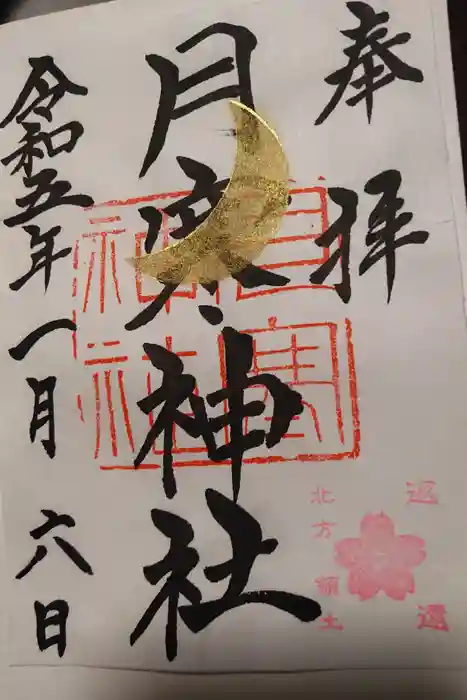 奉拝
月寒神社
令和五年一月六日
月寒神社
返還
北方領土